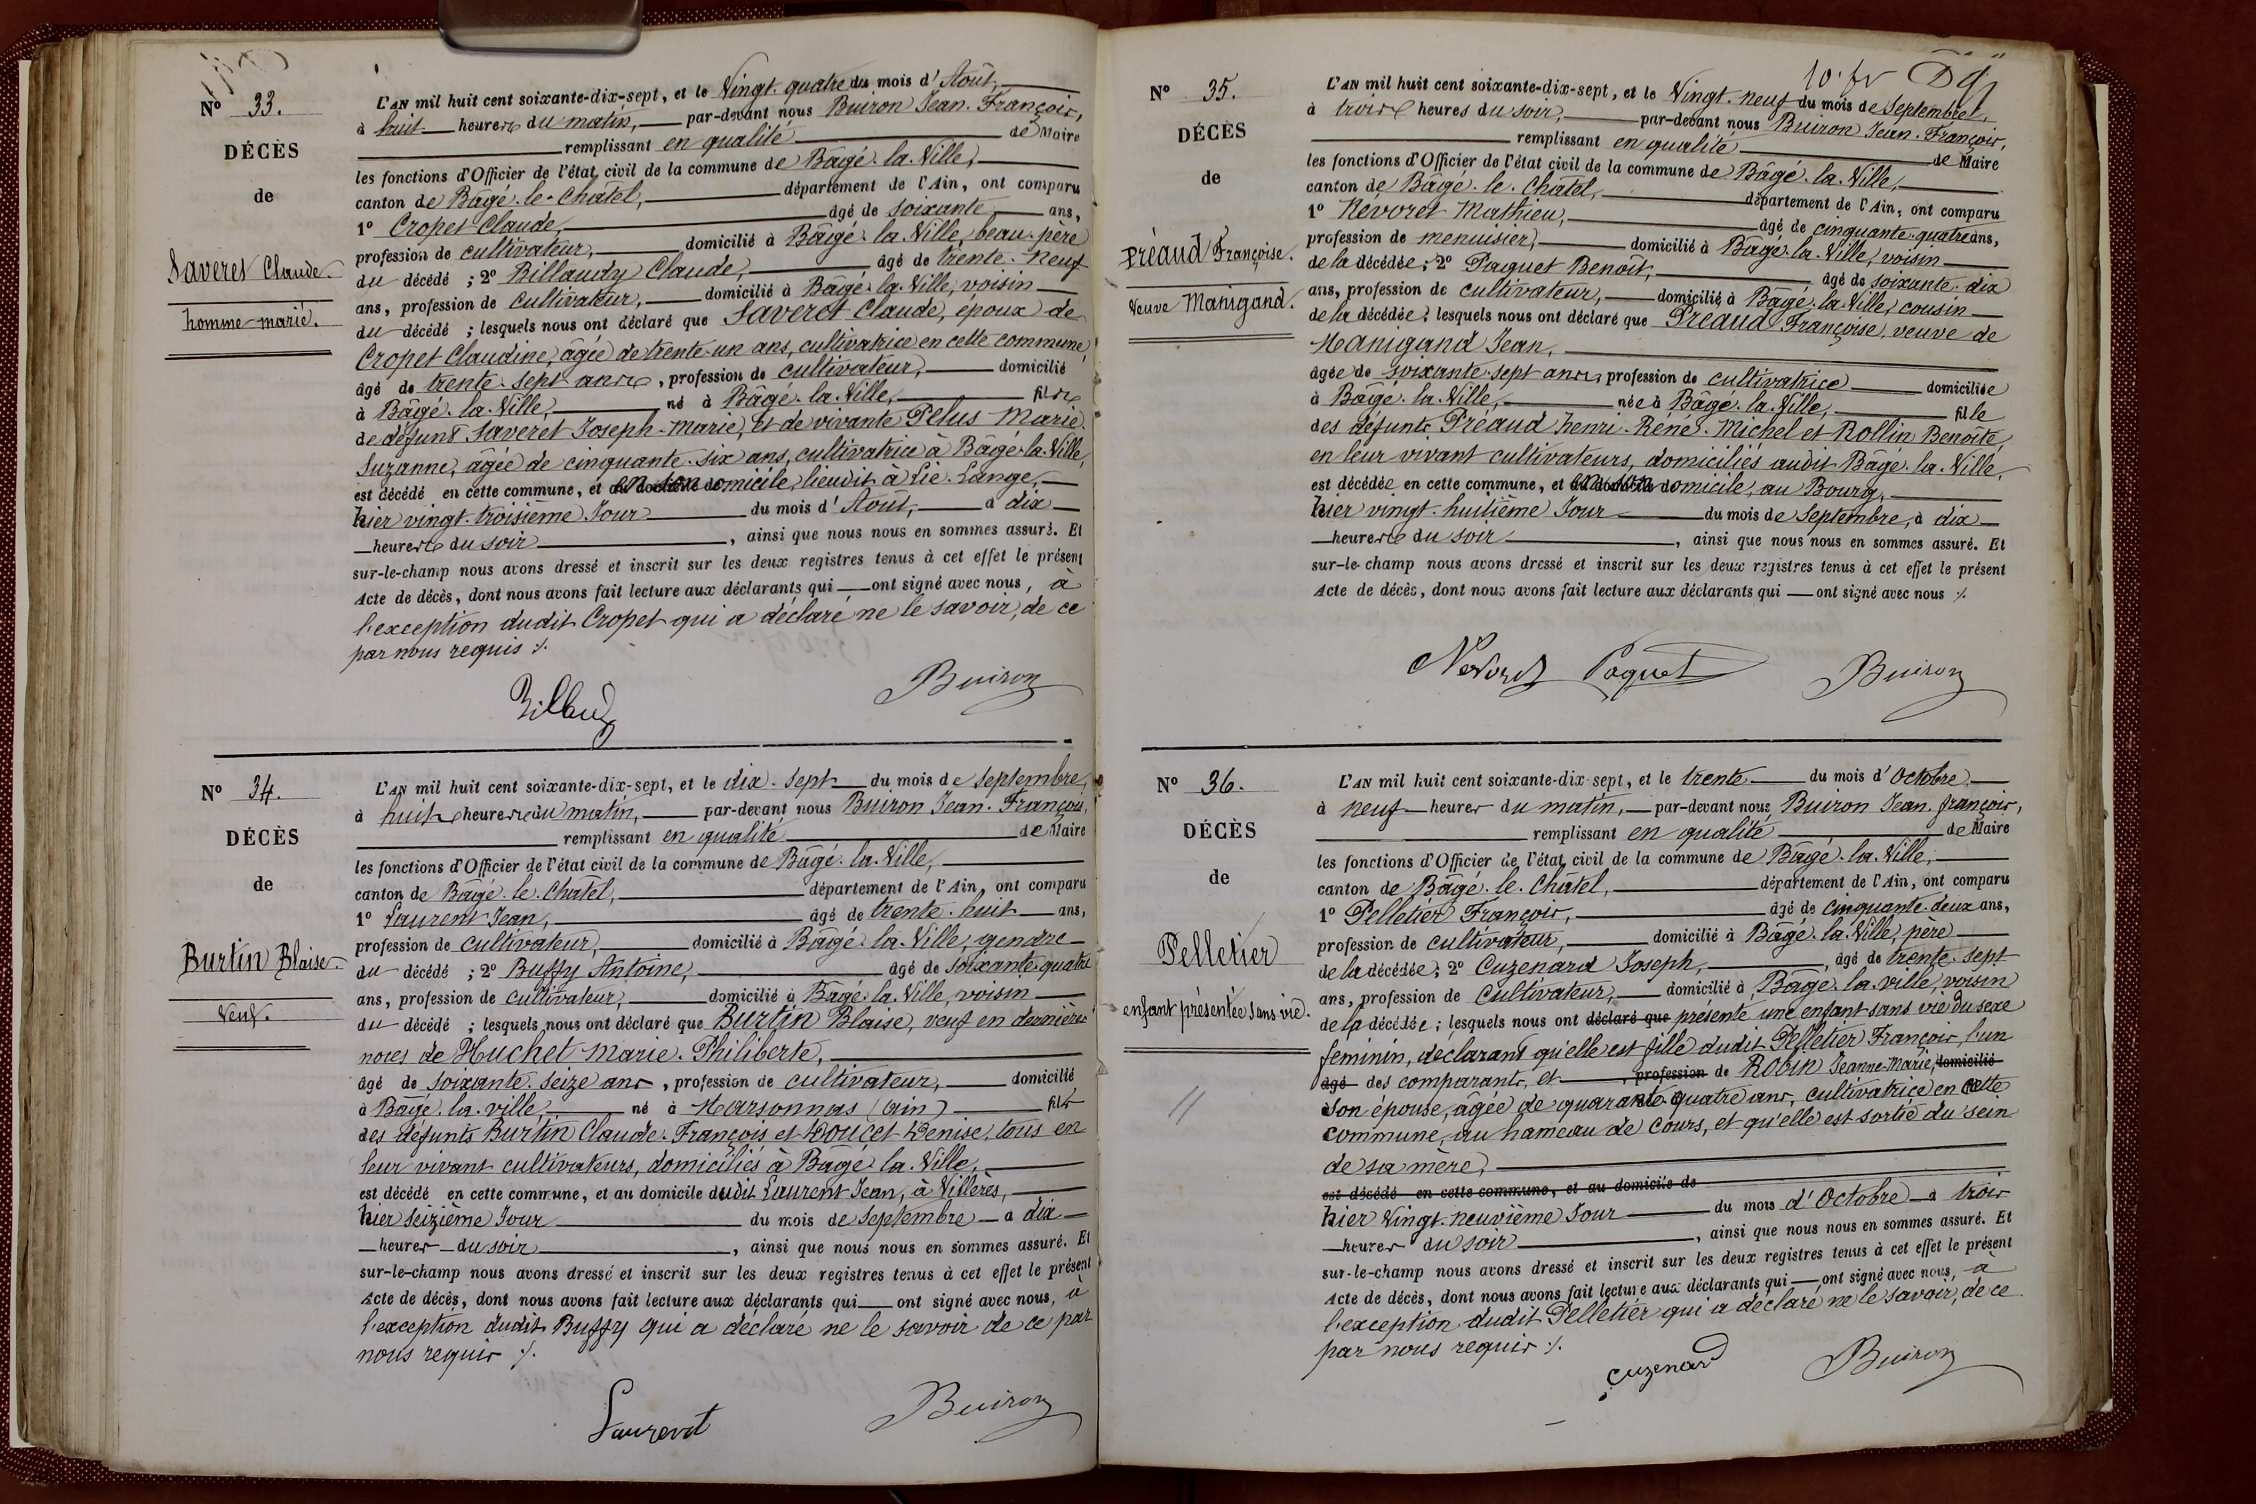 Nº 33.
DÉCÈS
de
Saveret Claude.
homme marié.
L'AN mil huit cent soixante-dix-sept, et le Vingt-quatre du mois d'Août,
à huit heures du matin, par-devant nous Buiron Jean-François,
remplissant en qualité de Maire
les fonctions d'Officier de l'état civil de la commune de Bâgé-la-Ville,
canton de Bâgé-le-Châtel, département de l'Ain, ont comparu
1º Cropet Claude, âgé de soixante ans,
profession de cultivateur, domicilié à Bâgé-la-Ville, beau-père
du décédé ; 2º Billaudy Claude, âgé de trente-neuf
ans, profession de cultivateur, domicilié à Bâgé-la-Ville, voisin
du décédé ; lesquels nous ont déclaré que Saveret Claude, époux de
Cropet Claudine, âgée de trente-un ans, cultivatrice en cette commune,
âgé de trente-sept ans, profession de cultivateur, domicilié
à Bâgé-la-Ville, né à Bâgé-la-Ville, fils
de défunt Saveret Joseph-Marie, et de vivante Pelus Marie-
Suzanne, âgée de cinquante-six ans, cultivatrice à Bâgé-la-Ville,
est décédé en cette commune, et en son domicile, lieudit à Lie-Lange,
hier vingt-troisième Jour du mois d'Août, à dix
heures du soir, ainsi que nous nous en sommes assuré. Et
sur-le-champ nous avons dressé et inscrit sur les deux registres tenus à cet effet le présent
Acte de décès, dont nous avons fait lecture aux déclarants qui ont signé avec nous, à
l'exception dudit Cropet qui a déclaré ne le savoir, de ce
par nous requis ./.
Buiron
Nº 34.
DÉCÈS
de
Burtin Blaise.
Veuf.
L'AN mil huit cent soixante-dix-sept, et le dix-sept du mois de Septembre,
à huit heures du matin, par-devant nous Buiron Jean-François,
remplissant en qualité de Maire
les fonctions d'Officier de l'état civil de la commune de Bâgé-la-Ville,
canton de Bâgé-le-Châtel, département de l'Ain, ont comparu
1º Laurent Jean, âgé de trente-huit ans,
profession de cultivateur, domicilié à Bâgé-la-Ville, gendre
du décédé ; 2º Buffy Antoine, âgé de soixante-quatre
ans, profession de cultivateur, domicilié à Bâgé-la-Ville, voisin
du décédé ; lesquels nous ont déclaré que Burtin Blaise, veuf en dernières
noces de Huchet Marie-Philiberte,
âgé de soixante-seize ans, profession de cultivateur, domicilié
à Bâgé-la-ville, né à Marsonnas (Ain) fils
des défunts Burtin Claude-François et Doucet Denise, tous en
leur vivant cultivateurs, domiciliés à Bâgé-la-Ville,
est décédé en cette commune, et au domicile dudit Laurent Jean, à Villères,
hier seizième Jour du mois de Septembre à dix
heures du soir, ainsi que nous nous en sommes assuré. Et
sur-le-champ nous avons dressé et inscrit sur les deux registres tenus à cet effet le présent
Acte de décès, dont nous avons fait lecture aux déclarants qui ont signé avec nous, à
l'exception dudit Buffy qui a déclaré ne le savoir de ce par
nous requis ./.
Laurent Buiron
Nº 35.
DÉCÈS
de
Préaud Françoise.
Veuve Manigand.
L'AN mil huit cent soixante-dix-sept, et le Vingt-neuf du mois de Septembre,
à trois heures du soir, par-devant nous Buiron Jean-François,
remplissant en qualité de Maire
les fonctions d'Officier de l'état civil de la commune de Bâgé-la-Ville,
canton de Bâgé-le-Châtel, département de l'Ain, ont comparu
1º Névoret Mathieu, âgé de cinquante-quatre ans,
profession de menuisier, domicilié à Bâgé-la-Ville, voisin
de la décédée ; 2º Paquet Benoît, âgé de soixante-dix
ans, profession de cultivateur, domicilié à Bâgé-la-Ville, cousin
de la décédée ; lesquels nous ont déclaré que Préaud Françoise, veuve de
Manigand Jean,
âgée de soixante-sept ans, profession de cultivatrice domiciliée
à Bâgé-la-Ville, née à Bâgé-la-Ville, fille
des défunts Préaud henri-Réné-Michel et Rollin Benoîte,
en leur vivant cultivateurs, domiciliés audit Bâgé-la-Ville,
est décédée en cette commune, et en son domicile, au Bourg,
hier vingt-huitième Jour du mois de Septembre, à dix
heures du soir, ainsi que nous nous en sommes assuré. Et
sur-le-champ nous avons dressé et inscrit sur les deux registres tenus à cet effet le présent
Acte de décès, dont nous avons fait lecture aux déclarants qui ont signé avec nous ./.
Nevoret Paquet Buiron
Nº 36.
DÉCÈS
de
Pelletier
enfant présentée sans vie.
L'AN mil huit cent soixante-dix-sept, et le trente du mois d'Octobre
à neuf heures du matin, par-devant nous Buiron Jean-françois,
remplissant en qualité de Maire
les fonctions d'Officier de l'état civil de la commune de Bâgé-la-Ville,
canton de Bâgé-le-Châtel, département de l'Ain, ont comparu
1º Pelletier François, âgé de cinquante-deux ans,
profession de cultivateur, domicilié à Bâgé-la-Ville, père
de la décédée ; 2º Cuzenard Joseph, âgé de trente-sept
ans, profession de cultivateur, domicilié à Bâgé-la-ville, voisin
de la décédée ; lesquels nous ont déclaré que présenté une enfant sans vie du sexe
feminin, déclarant qu'elle est fille dudit Pelletier François, l'un
âgé des comparants, et profession de Robin Jeanne-Marie, domicilié
son épouse, âgée de quarante-quatre ans, cultivatrice en cette
commune, au hameau de Cours, et qu'elle est sortie du sein
de sa mère,
est décédé en cette commune, et au domicile de
hier Vingt-neuvième Jour du mois d'Octobre à trois
heures du soir, ainsi que nous nous en sommes assuré. Et
sur-le-champ nous avons dressé et inscrit sur les deux registres tenus à cet effet le présent
Acte de décès, dont nous avons fait lecture aux déclarants qui ont signé avec nous, à
l'exception dudit Pelletier qui a déclaré ne le savoir, de ce
par nous requis ./.
Cuzenard Buiron